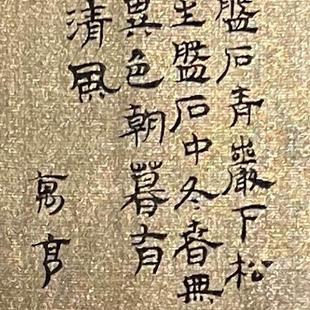 盤石青巖下松
生盤石中冬春無
異色朝暮有
清風